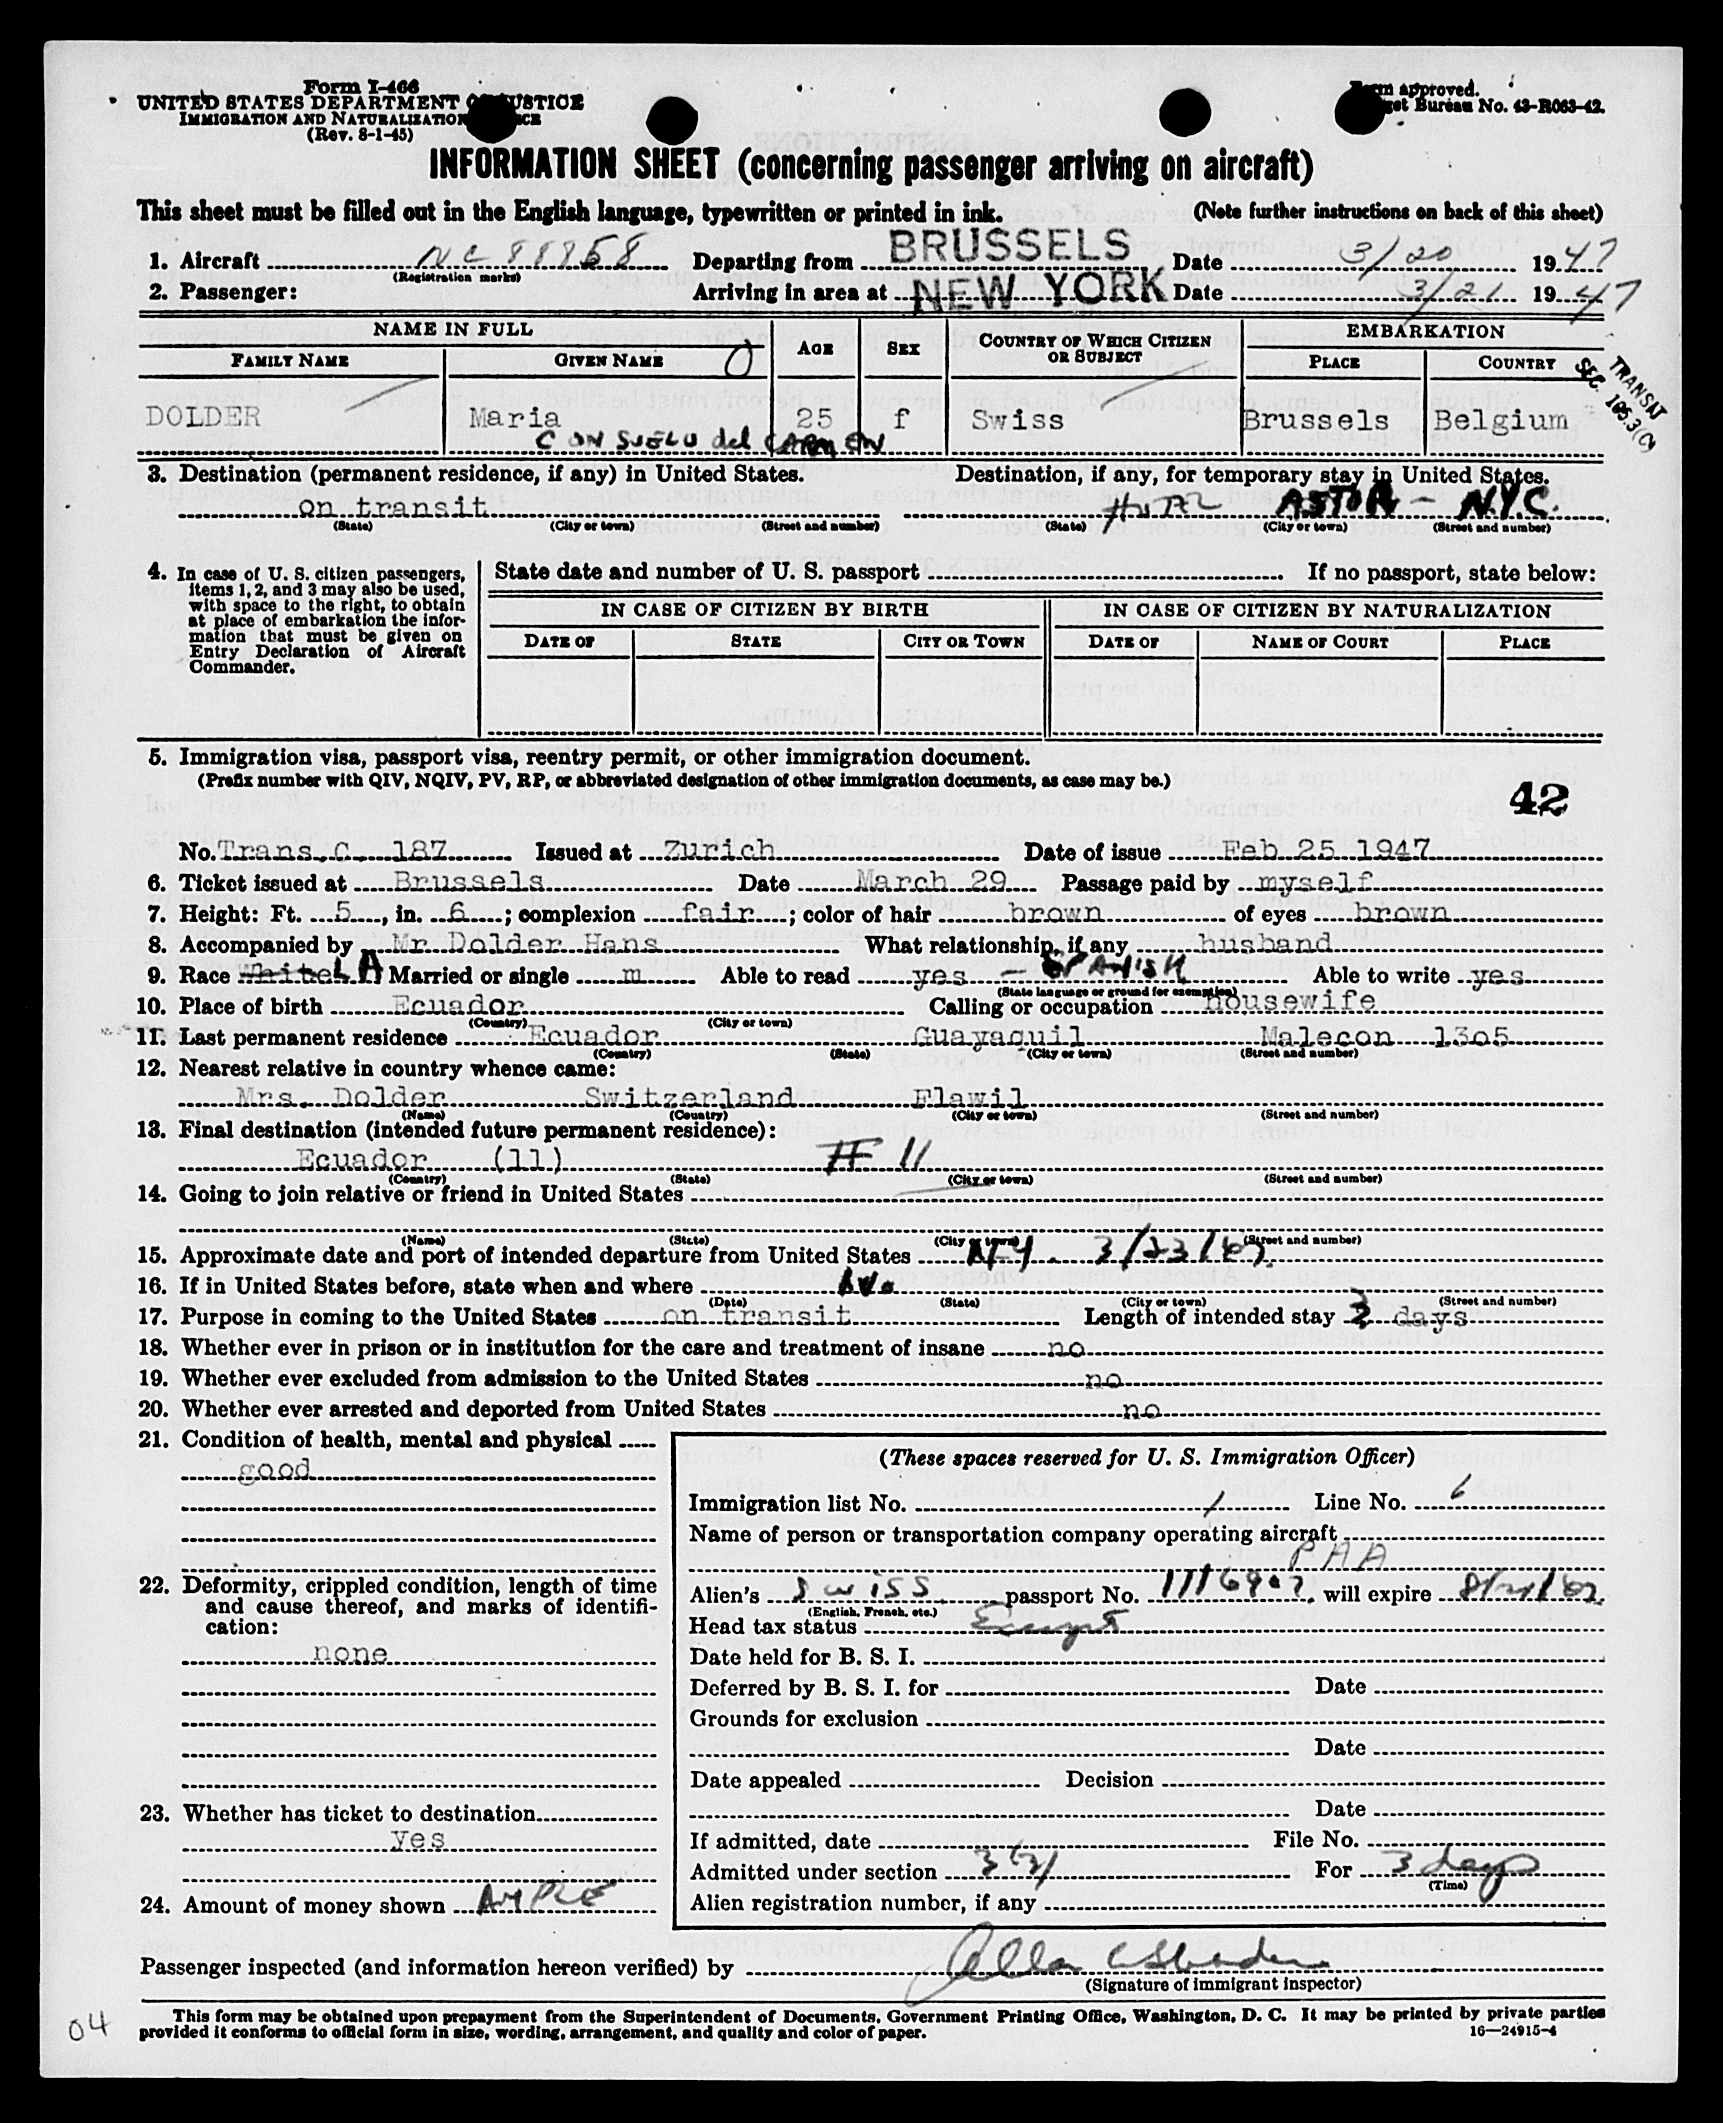 Form I-466
UNITED STATES DEPARTMENT OF JUSTICE
IMMIGRATION AND NATURALIZATION SERVICE
(Rev. 8-1-45)
Form approved.
Budget Bureau No. 43-R063-42.
INFORMATION SHEET (concerning passenger arriving on aircraft)
This sheet must be filled out in the English language, typewritten or printed in ink. (Note further instructions on back of this sheet)
1. Aircraft NC 88858 Departing from BRUSSELS Date 3/20 1947
(Registration marks)
2. Passenger: Arriving in area at NEW YORK Date 3/21 1947
NAME IN FULL AGE SEX COUNTRY OF WHICH CITIZEN OR SUBJECT EMBARKATION
FAMILY NAME GIVEN NAME PLACE COUNTRY
TRANSAT
SEC. 105.3(C)
DOLDER Maria 25 f Swiss Brussels Belgium
CONSUELO del CARMEN
3. Destination (permanent residence, if any) in United States. Destination, if any, for temporary stay in United States.
on transit HOTEL ASTOR - N.Y.C.
(State) (City or town) (Street and number) (State) (City or town) (Street and number)
4. In case of U. S. citizen passengers, items 1, 2, and 3 may also be used, with space to the right, to obtain at place of embarkation the information that must be given on Entry Declaration of Aircraft Commander.
State date and number of U. S. passport If no passport, state below:
IN CASE OF CITIZEN BY BIRTH IN CASE OF CITIZEN BY NATURALIZATION
DATE OF STATE CITY OR TOWN DATE OF NAME OF COURT PLACE
5. Immigration visa, passport visa, reentry permit, or other immigration document.
(Prefix number with QIV, NQIV, PV, RP, or abbreviated designation of other immigration documents, as case may be.)
42
No. Trans. C. 187 Issued at Zurich Date of issue Feb 25 1947
6. Ticket issued at Brussels Date March 29 Passage paid by myself
7. Height: Ft. 5, in. 6; complexion fair; color of hair brown of eyes brown
8. Accompanied by Mr. Dolder Hans What relationship, if any husband
9. Race white LA Married or single m Able to read yes - SPANISH Able to write yes
(State language or ground for exemption)
10. Place of birth Ecuador Calling or occupation housewife
(Country) (City or town)
11. Last permanent residence Ecuador Guayaquil Malecon 1305
(Country) (State) (City or town) (Street and number)
12. Nearest relative in country whence came:
Mrs. Dolder Switzerland Flawil
(Name) (Country) (City or town) (Street and number)
13. Final destination (intended future permanent residence):
Ecuador (11) # 11
(Country) (State) (City or town) (Street and number)
14. Going to join relative or friend in United States
(Name) (State) (City or town) (Street and number)
15. Approximate date and port of intended departure from United States NY. 3/23/47.
16. If in United States before, state when and where No
(Date) (State) (City or town) (Street and number)
17. Purpose in coming to the United States on transit Length of intended stay 3 days
18. Whether ever in prison or in institution for the care and treatment of insane no
19. Whether ever excluded from admission to the United States no
20. Whether ever arrested and deported from United States no
21. Condition of health, mental and physical
good
22. Deformity, crippled condition, length of time and cause thereof, and marks of identification:
none
23. Whether has ticket to destination
Yes
24. Amount of money shown AMPLE
(These spaces reserved for U. S. Immigration Officer)
Immigration list No. 1 Line No. 6
Name of person or transportation company operating aircraft
PAA
Alien's Swiss passport No. will expire
(English, French, etc.)
Head tax status Exempt
Date held for B. S. I.
Deferred by B. S. I. for Date
Grounds for exclusion
Date
Date appealed Decision
Date
If admitted, date File No.
Admitted under section 3(3) For 3 days
(Time)
Alien registration number, if any
Passenger inspected (and information hereon verified) by
(Signature of immigrant inspector)
This form may be obtained upon prepayment from the Superintendent of Documents, Government Printing Office, Washington, D. C. It may be printed by private parties
provided it conforms to official form in size, wording, arrangement, and quality and color of paper.
16—24915-4
04